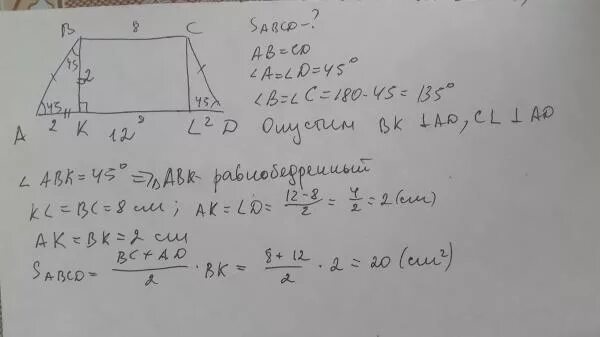 B 8 C
45 2
45 45
A 2 K 8 L 2 D
12
S ABCD - ?
AB = CD
∠A = ∠D = 45°
∠B = ∠C = 180 - 45 = 135°
Опустим BK ⊥ AD, CL ⊥ AD
∠ ABK = 45° ⇒ △ABK - равнобедренный
KL = BC = 8 см ; AK = LD = (12 - 8)/2 = 4/2 = 2 (см)
AK = BK = 2 см
S ABCD = (BC + AD)/2 · BK = (8 + 12)/2 · 2 = 20 (см²)